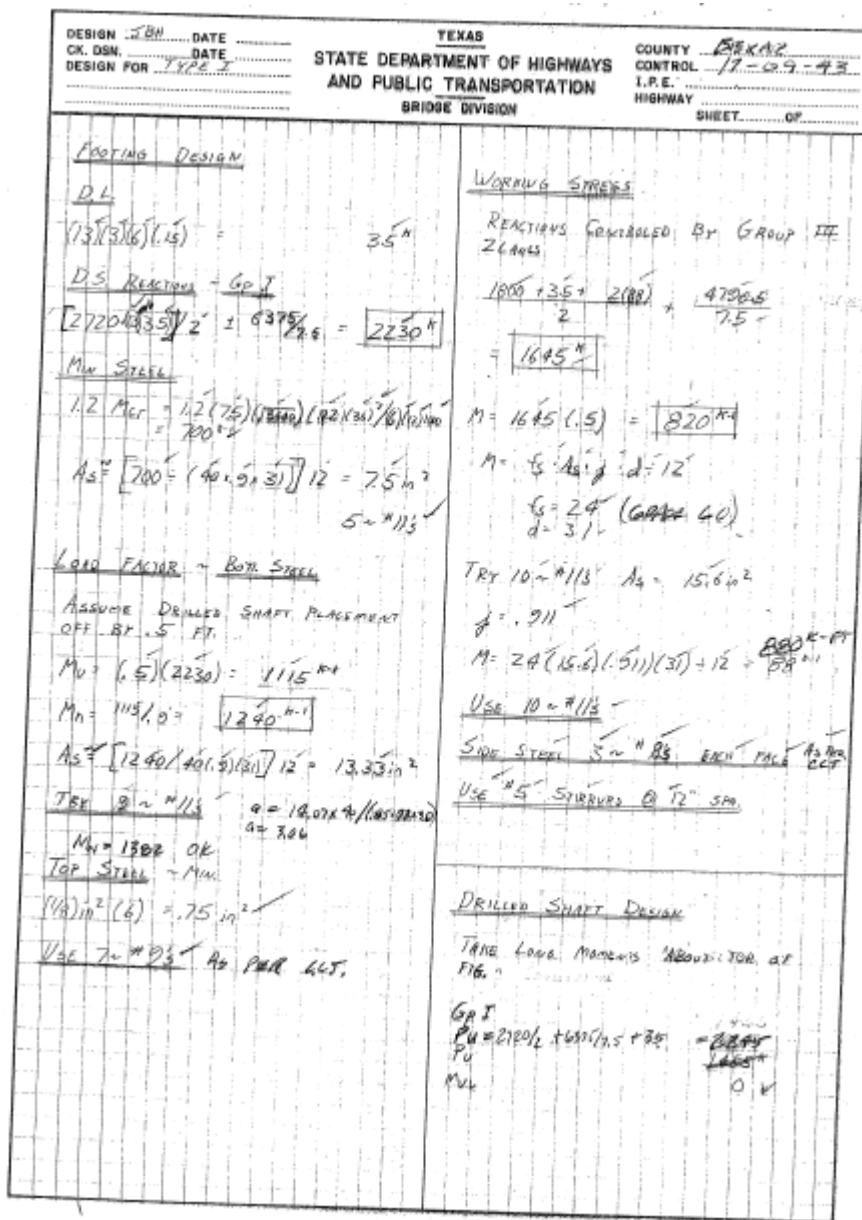 DESIGN JBH DATE
CK. DSN. DATE
DESIGN FOR TYPE I
TEXAS
STATE DEPARTMENT OF HIGHWAYS
AND PUBLIC TRANSPORTATION
BRIDGE DIVISION
COUNTY BEXAR
CONTROL 17-09-43
I.P.E.
HIGHWAY
SHEET OF
FOOTING DESIGN
D.L.
(13)(3)(6)(.15) = 35 K
D.S. REACTIONS - GP. I
/2 ± 6375/7.5 = 2230 K
MIN STEEL
1.2 Mcr = 1.2 (7.5)
= 700
As = [700 ÷ (40 x .9 x 31)] 12 = 7.5 in²
5 ~ #11's
LOAD FACTOR ~ BOTT. STEEL
ASSUME DRILLED SHAFT PLACEMENT
OFF BY .5 FT.
Mu = (.5)(2230) = 1115 K-1
Mn = 1115/.9 = 1240 K-1
As = [1240/40(.9)(31)] 12 = 13.33 in²
TRY 9 ~ #11's
a = 3.06
Mn = 1382 OK
TOP STEEL ~ MIN.
(1/8)in² (6) = .75 in²
USE 7 ~ #9's AS PER CLT.
WORKING STRESS
REACTIONS CONTROLED BY GROUP III
2 LANES
1800 + 35 + 2(88) + 4796.5
2 7.5
= 1645 K
M = 1645 (.5) = 820 K-1
M = fs · As · j · d ÷ 12
fs = 24 (GRADE 60)
d = 31
TRY 10 ~ #11's As = 15.6 in²
j = .911
M = 24 (15.6)(.911)(31) ÷ 12 = 880 K-FT
USE 10 ~ #11's
SIDE STEEL 3 ~ #8's EACH FACE AS PER CLT
USE #5 STIRRUPS @ 12" SPA.
DRILLED SHAFT DESIGN
TAKE LONG. MOMENTS ABOUT TOP OF
FTG.
GP I
Pu = 2720/2 + 6375/7.5 + 35
Pu
0